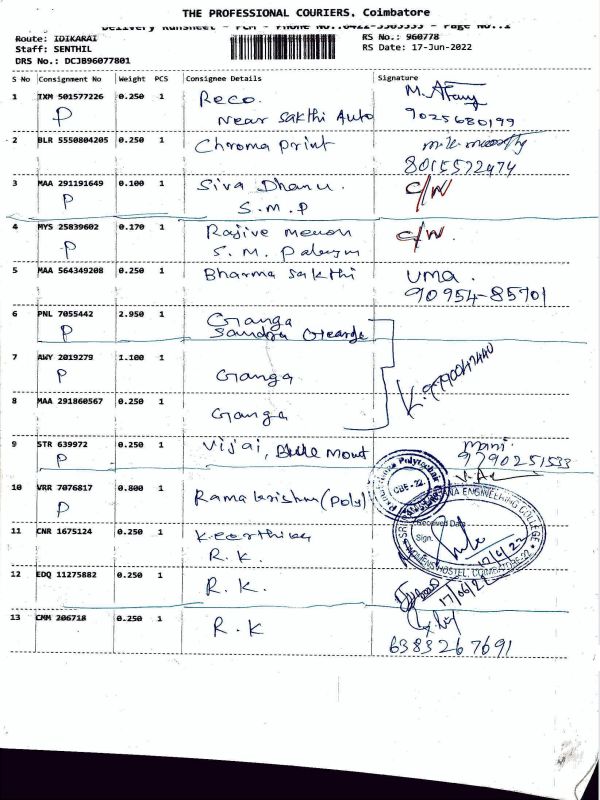 THE PROFESSIONAL COURIERS, Coimbatore
Delivery Runsheet - PCM - PHONE NO.:0422- - Page No.:1
Route: IDIKARAI RS No.: 960778
Staff: SENTHIL RS Date: 17-Jun-2022
DRS No.: DCJB96077801
S No Consignment No Weight PCS Consignee Details Signature
1 IXM 501577226 0.250 1 Reco. M.
P Near Sakthi Auto 9025680199
2 BLR 5550804205 0.250 1 Chroma print
8015572474
3 MAA 291191649 0.100 1 Siva Dhanu. C/N
P S.M.P
4 MYS 25839602 0.170 1 Rajive menon C/N.
P S.M.
5 MAA 564349208 0.250 1 Bharma Sakthi UMA.
90954-85701
6 PNL 7055442 2.950 1 Ganga
P Sandra George
7 AWY 2019279 1.100 1
P Ganga
8 MAA 291860567 0.250 1 Ganga
9 STR 639972 0.250 1 Vijai, Mount Mani.
P 9790251533
10 VRR 7076817 0.800 1 Ramakrishna (Poly)
P
CBE-22
ENGINEERING COLLEGE
WOMENS HOSTEL, COIMBATORE-22
Received Date
Sign.
17/6/22
11 CNR 1675124 0.250 1
R.K.
12 EDQ 11275882 0.250 1 R.K.
17/06/22
13 CMM 206718 0.250 1 R.K
6383267691